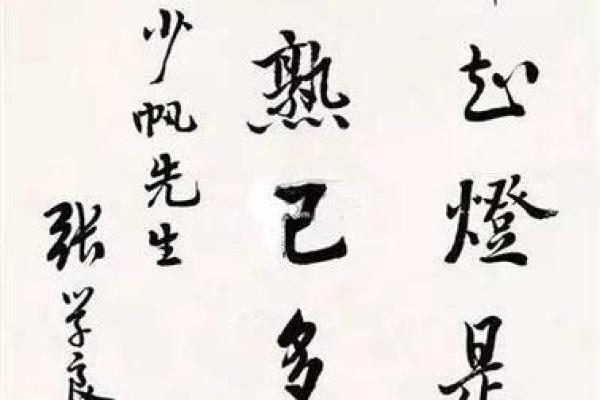 知燈是
熟已多
少帆先生
张学良